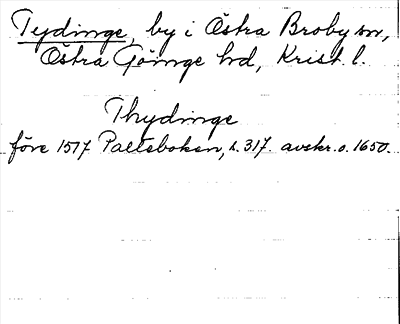 Tydinge, by i Östra Broby sn,
Östra Göinge hd, Krist. l.
Thydinge
före 1517 Palteboken, s. 317. avskr. o. 1650.